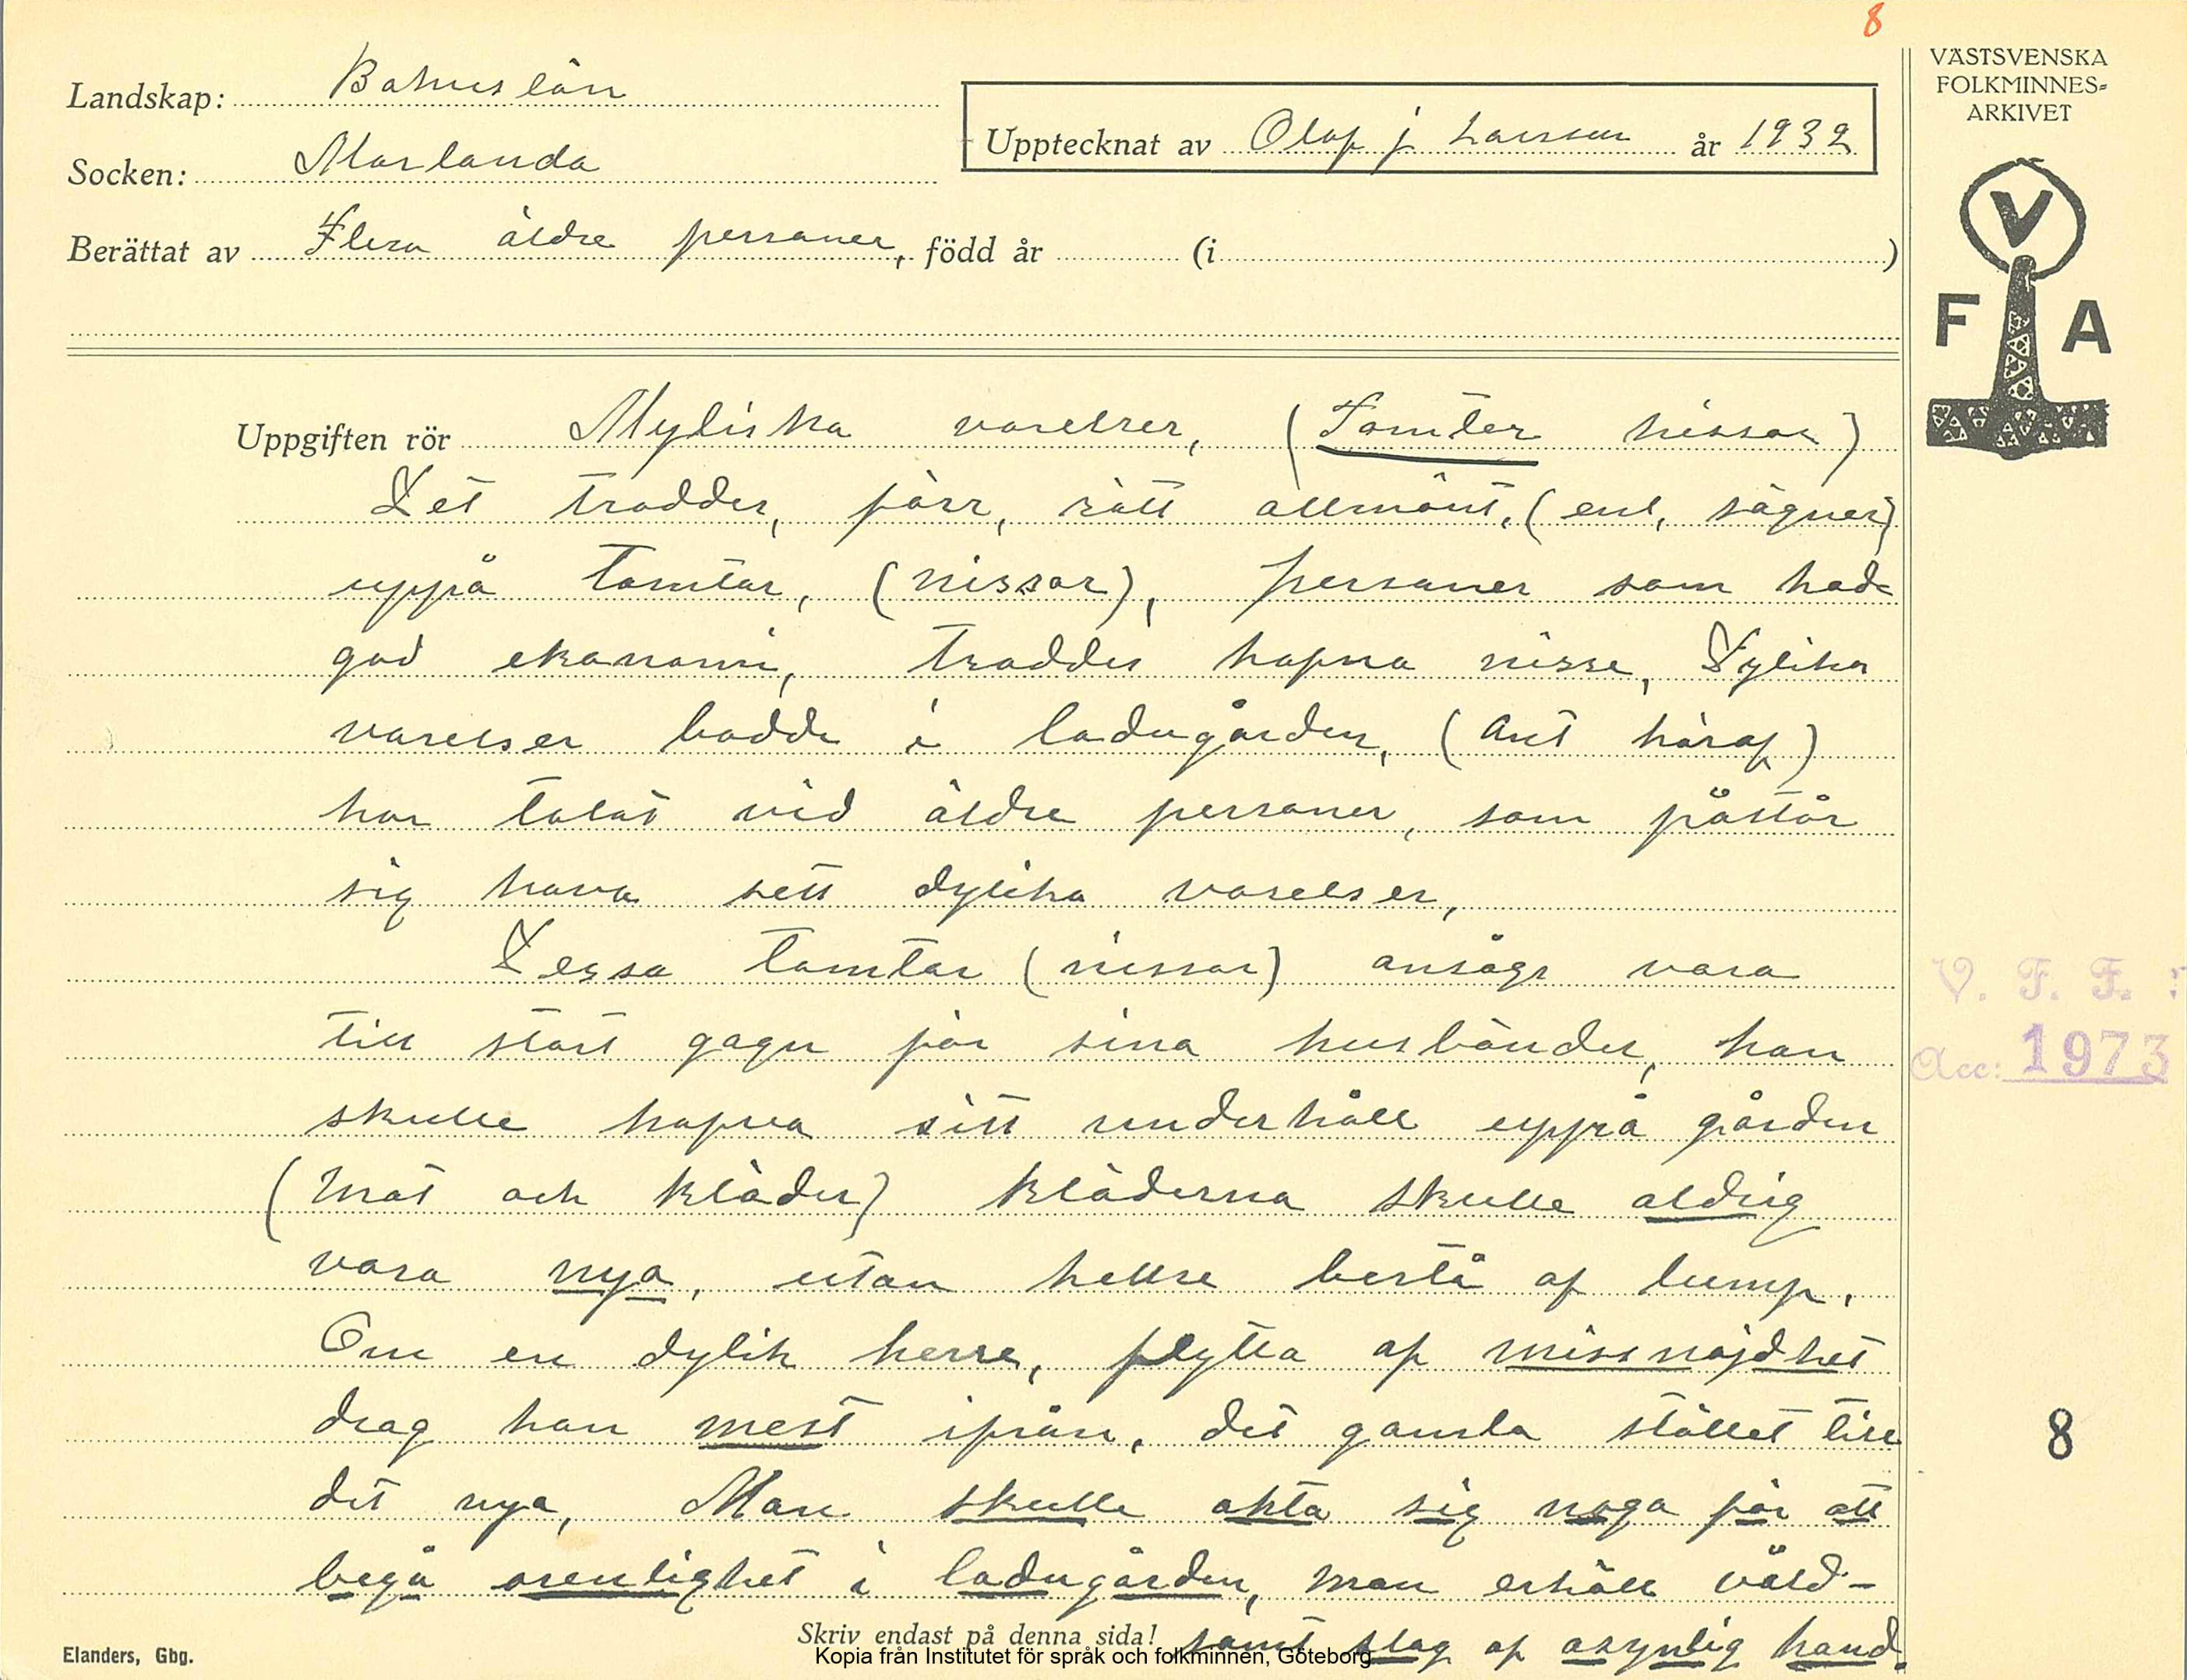 8
VÄSTSVENSKA
FOLKMINNES-
ARKIVET
Landskap: Bohuslän
Upptecknat av Olof j Larsson år 1932
Socken: Morlanda
Berättat av Flera äldre personer, född år (i )
V
F A
Uppgiften rör Mytiska varelser, (Tomter nissar)
Det troddes, förr, rätt allmänt, (enl, sägner)
uppå tomtar, (nissar), personer som hade
god ekonomi, troddes hafva nisse, Dylika
varelser bodde i ladugården, (Ant häraf)
har talat vid äldre personer, som påstår
sig hava sett dylika varelser,
Dessa tomtar (nissar) ansågs vara
till stort gagn för sina husbönder, han
skulle hafva sitt underhåll uppå gården
(Mat och kläder) kläderna skulle aldrig
vara nya, utan hellre bestå af lump,
Om en dylik herre, flytta af missnöjdhet
drog han mest ifrån, det gamla stället till
det nya, Man skulle akta sig noga för att
begå orenlighet i ladugården, man erhöll våld-
samt slag af osynlig hand.
V. F. F.
Acc: 1973
8
Skriv endast på denna sida!
Elanders, Gbg.
Kopia från Institutet för språk och folkminnen, Göteborg